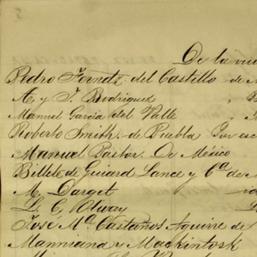 De la vuel
Pedro Fernz. del Castillo de M
A. y J. Rodriguez
Manuel Garcia del Valle
Roberto Smith, de Puebla Por esc
Manuel Pastor. De México
Billete de Guiard Lance y Cª de
M. Darget
L. C. Olway
Jose Mª Castaños Aguirre de
Manniana y Mackintosk